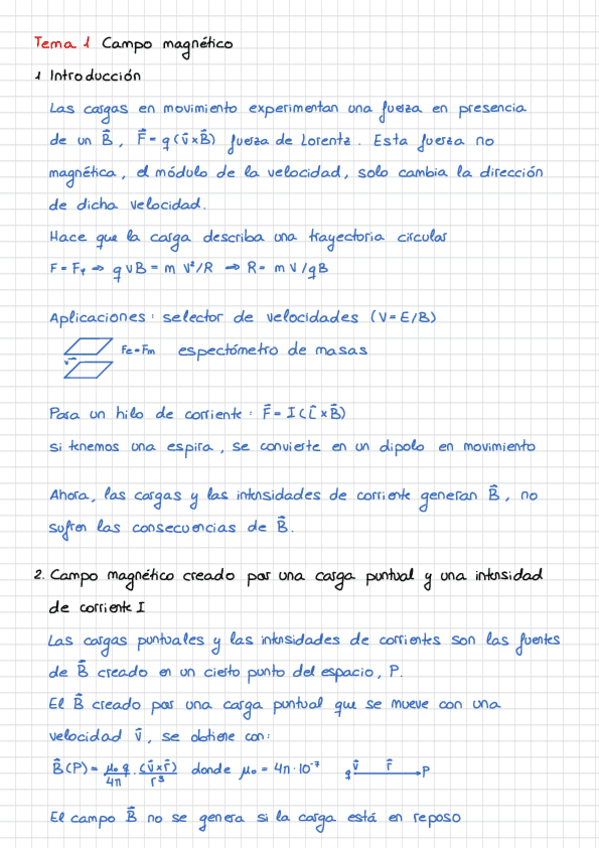 Tema 1 Campo magnético
1 Introducción
Las cargas en movimiento experimentan una fuerza en presencia
de un B⃗, F⃗ = q(v⃗×B⃗) fuerza de Lorentz. Esta fuerza no
magnética, el módulo de la velocidad, solo cambia la dirección
de dicha velocidad.
Hace que la carga describa una trayectoria circular
F = F₁ ⇒ qvB = m V²/R → R = mV/qB
Aplicaciones: selector de velocidades (V=E/B)
v⃗ Fe=Fm espectómetro de masas
Para un hilo de corriente: F⃗ = I(L⃗×B⃗)
si tenemos una espira, se convierte en un dipolo en movimiento
Ahora, las cargas y las intensidades de corriente generan B⃗, no
sufren las consecuencias de B⃗.
2. Campo magnético creado por una carga puntual y una intensidad
de corriente I
Las cargas puntuales y las intensidades de corrientes son las fuentes
de B⃗ creado en un cierto punto del espacio, P.
El B⃗ creado por una carga puntual que se mueve con una
velocidad v⃗, se obtiene con:
B⃗(P) = μ₀ q/4π · (v⃗×r⃗)/r³ donde μ₀ = 4π·10⁻⁷ q v⃗ r⃗ P
El campo B⃗ no se genera si la carga está en reposo